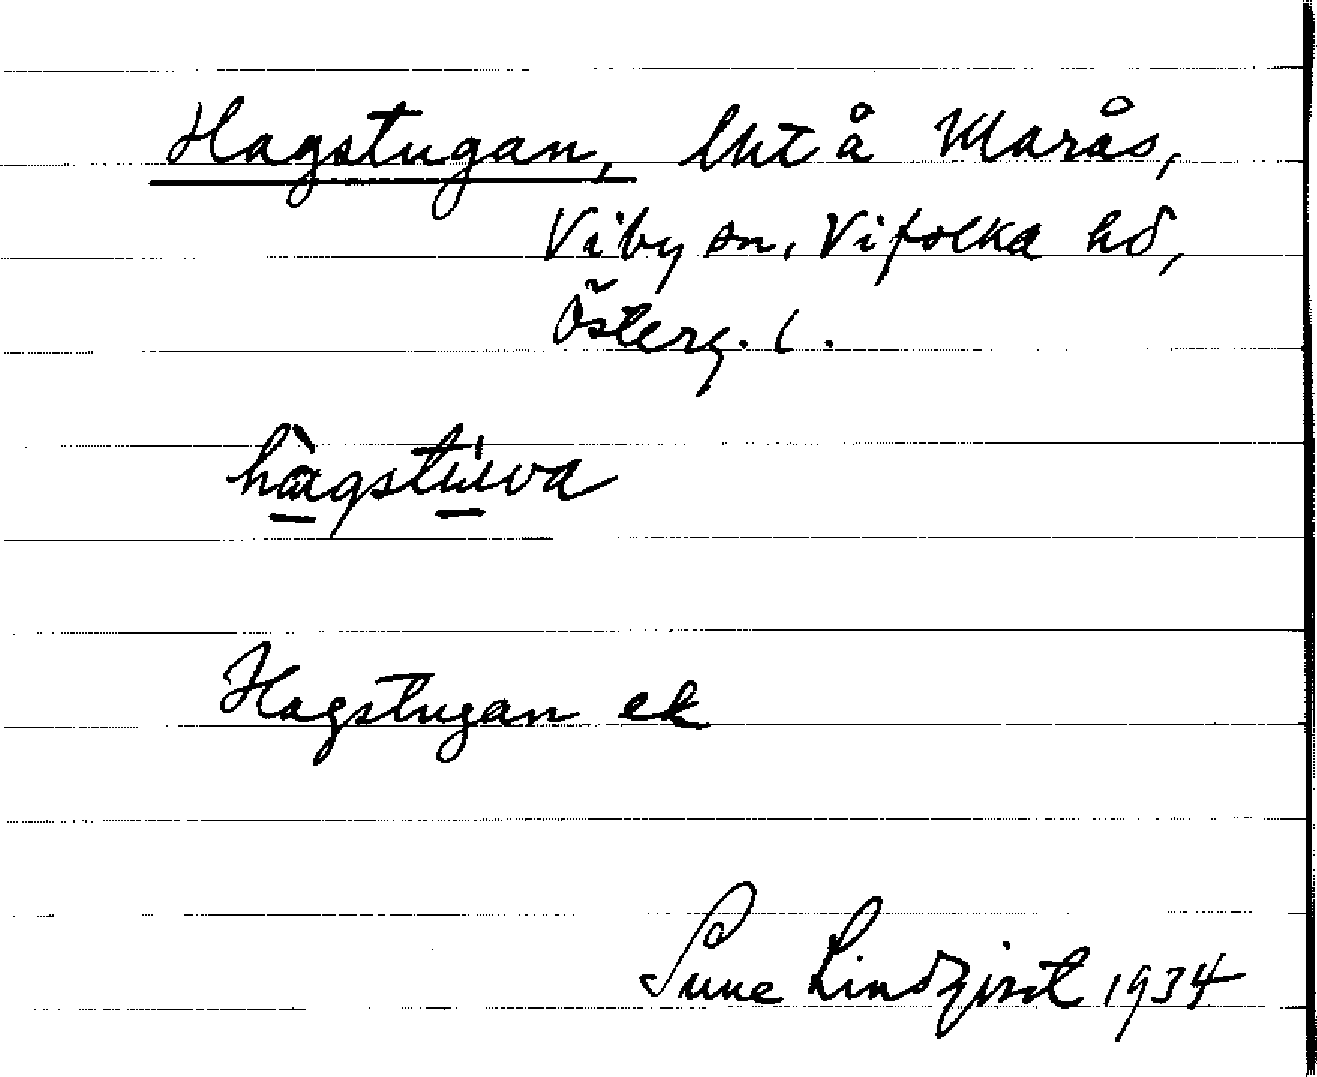 Hagstugan, lht å Marås,
Viby sn, Vifolka hd,
Österg. l.
hàgstùva
Hagstugan ek
Sune Lindqvist 1934